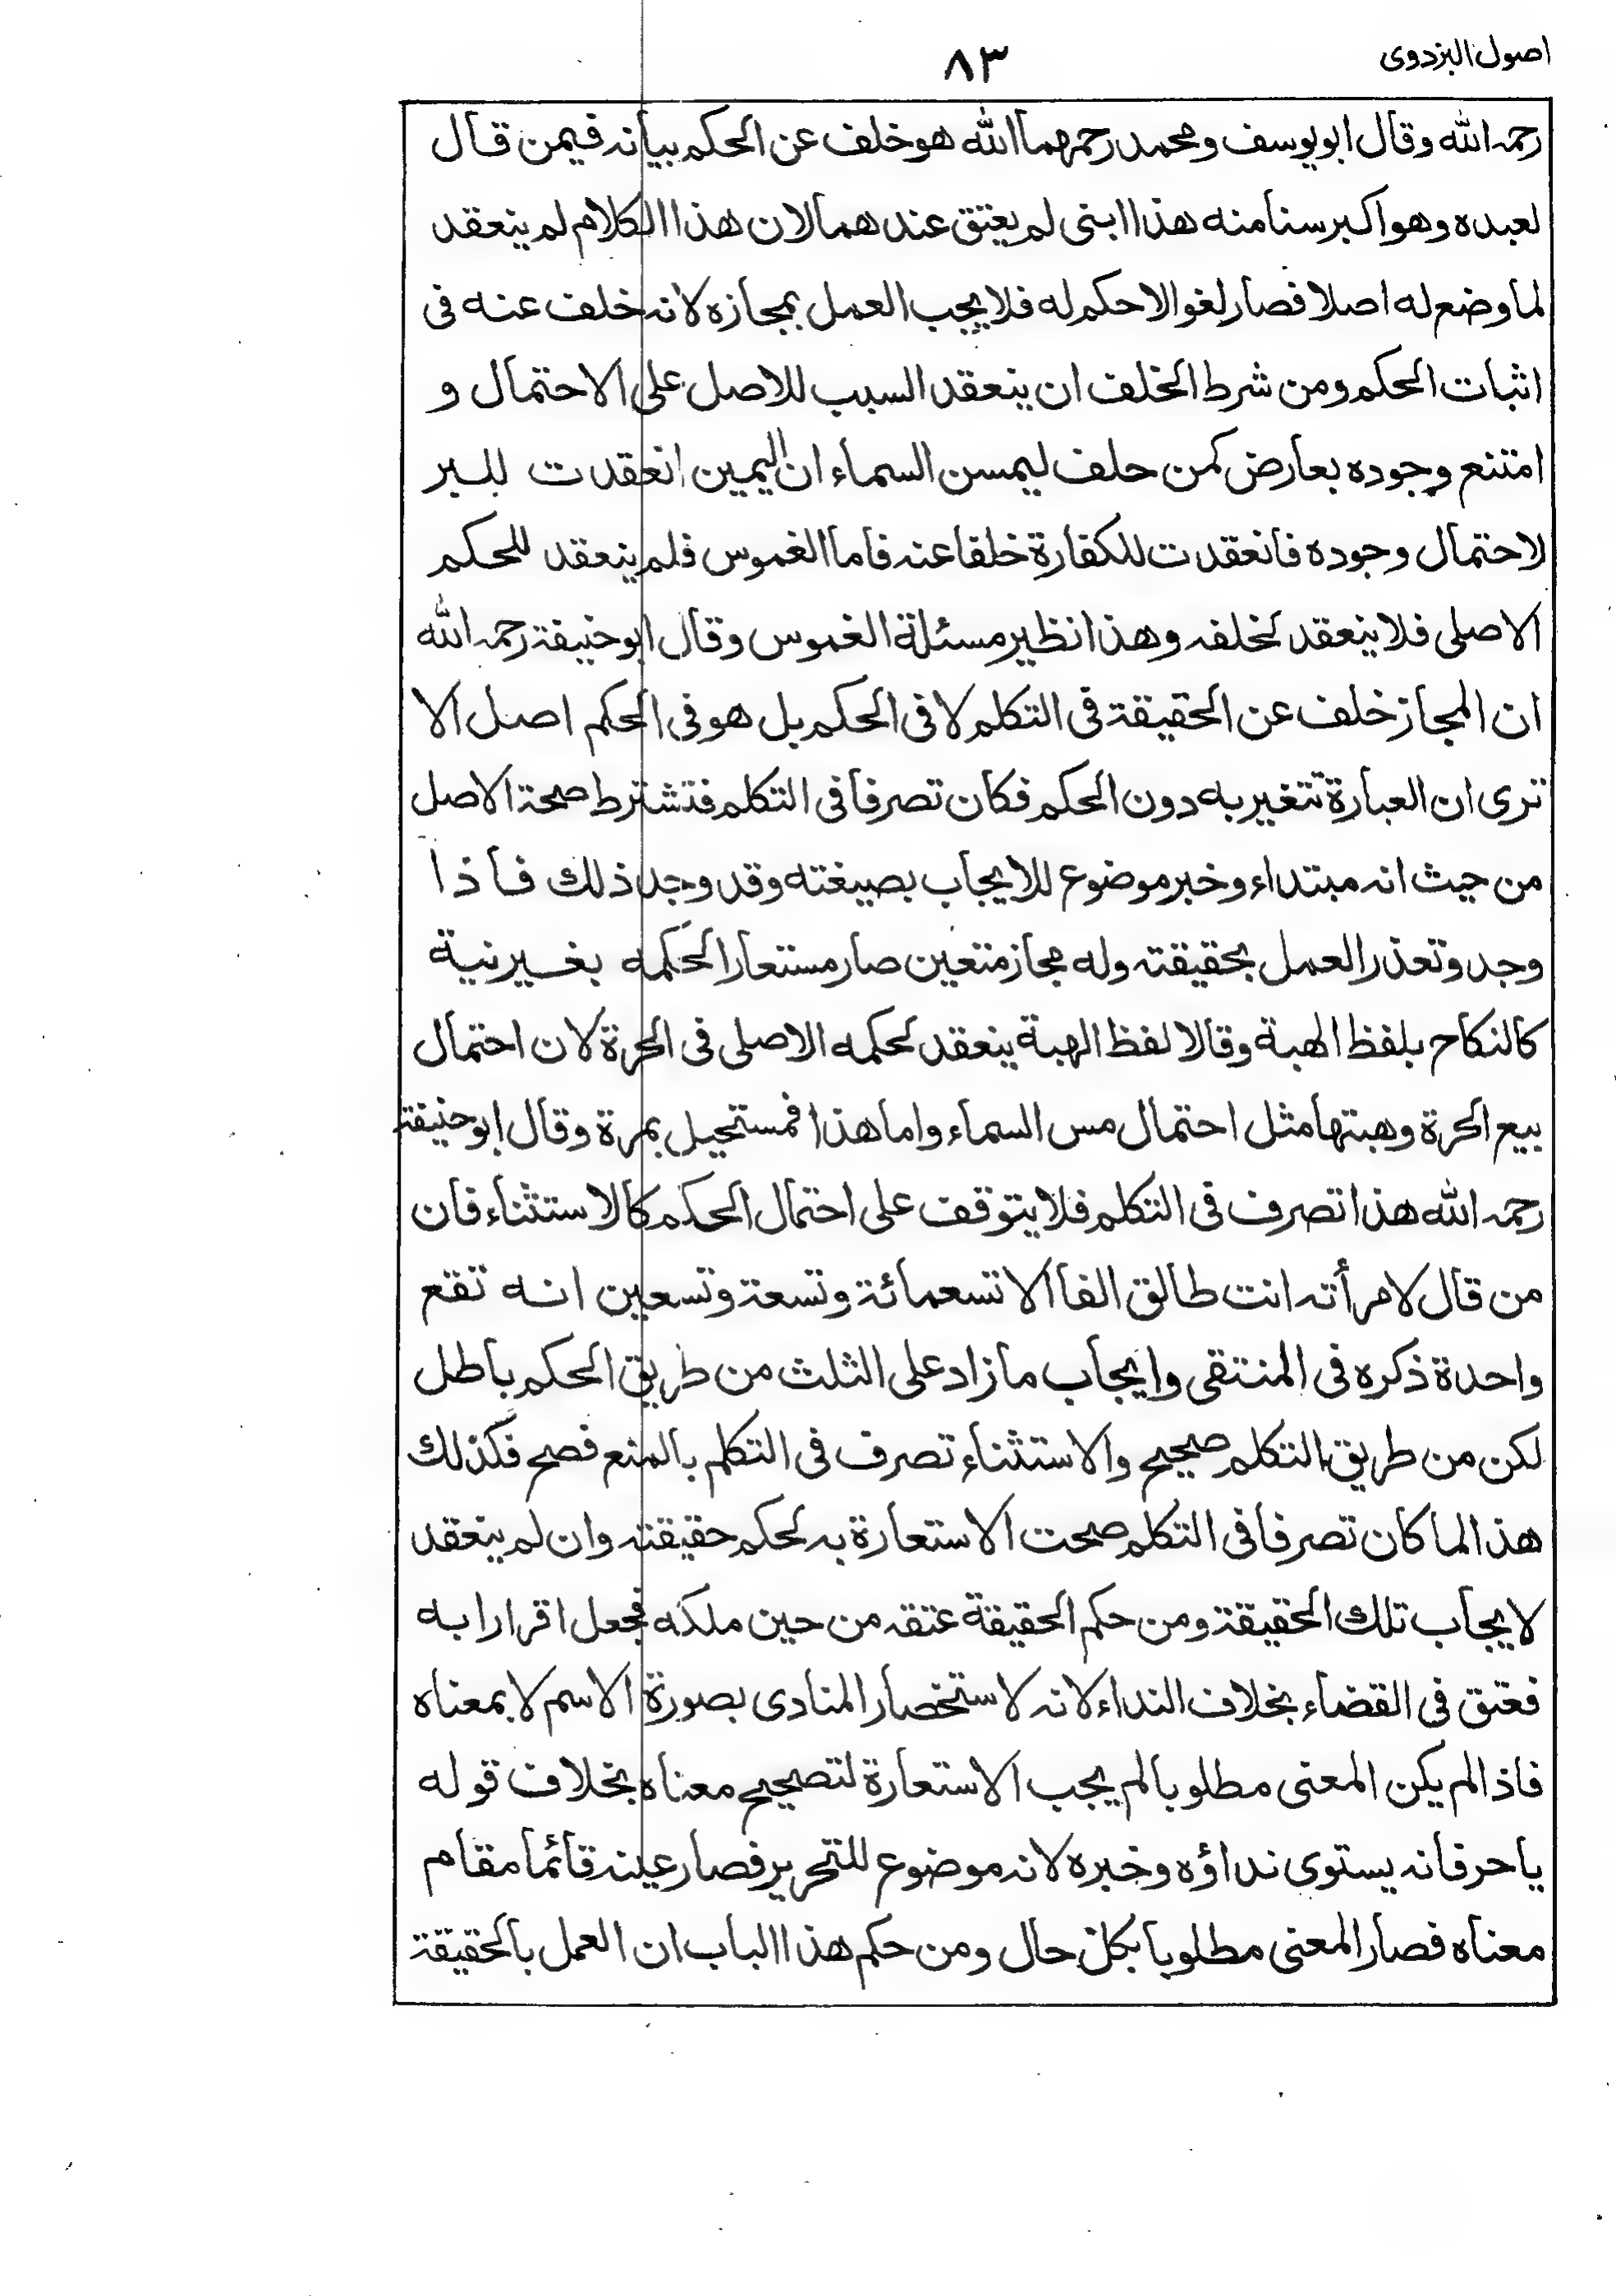 اصول البزدوى
٨٣
رحمه الله وقال ابويوسف ومحمد رحمهما الله هو خلف عن الحكم بيانه فيمن قال
لعبده وهو اكبر سنا منه هذا ابنى لم يعتق عندهما لان هذا الكلام لم ينعقد
لما وضع له اصلا فصار لغوا لا حكم له فلا يجب العمل بمجازه لانه خلف عنه فى
اثبات الحكم ومن شرط الخلف ان ينعقد السبب للاصل على الاحتمال و
امتنع وجوده بعارض كمن حلف ليمسن السماء ان اليمين انعقدت للبر
لاحتمال وجوده فانعقدت للكفارة خلفا عنه فاما الغموس فلم ينعقد للحكم
الاصلى فلا ينعقد لخلفه وهذا نظير مسئلة الغموس وقال ابوحنيفة رحمه الله
ان المجاز خلف عن الحقيقة فى التكلم لا فى الحكم بل هو فى الحكم اصل الا
ترى ان العبارة تتغير به دون الحكم فكان تصرفا فى التكلم فتشترط صحة الاصل
من حيث انه مبتداء وخبر موضوع للايجاب بصيغته وقد وجد ذلك فاذا
وجد وتعذر العمل بحقيقته وله مجاز متعين صار مستعارا لحكمه بغير نية
كالنكاح بلفظ الهبة وقالا لفظ الهبة ينعقد لحكمه الاصلى فى الحرة لان احتمال
بيع الحرة وهبتها مثل احتمال مس السماء واما هذا فمستحيل بمرة وقال ابوحنيفة
رحمه الله هذا تصرف فى التكلم فلا يتوقف على احتمال الحكم كالاستثناء فان
من قال لامرأته انت طالق الفا الا تسعمائة وتسعة وتسعين انه تقع
واحدة ذكره فى المنتقى وايجاب ما زاد على الثلث من طريق الحكم باطل
لكن من طريق التكلم صحيح والاستثناء تصرف فى التكلم بالمنع فصح فكذلك
هذا لما كان تصرفا فى التكلم صحت الاستعارة به لحكم حقيقته وان لم ينعقد
لايجاب تلك الحقيقة ومن حكم الحقيقة عتقه من حين ملكه فجعل اقرارا به
فعتق فى القضاء بخلاف النداء لانه لاستحضار المنادى بصورة الاسم لا بمعناه
فاذا لم يكن المعنى مطلوبا لم يجب الاستعارة لتصحيح معناه بخلاف قوله
يا حر فانه يستوى نداؤه وخبره لانه موضوع للتحرير فصار عينه قائما مقام
معناه فصار المعنى مطلوبا بكل حال ومن حكم هذا الباب ان العمل بالحقيقة